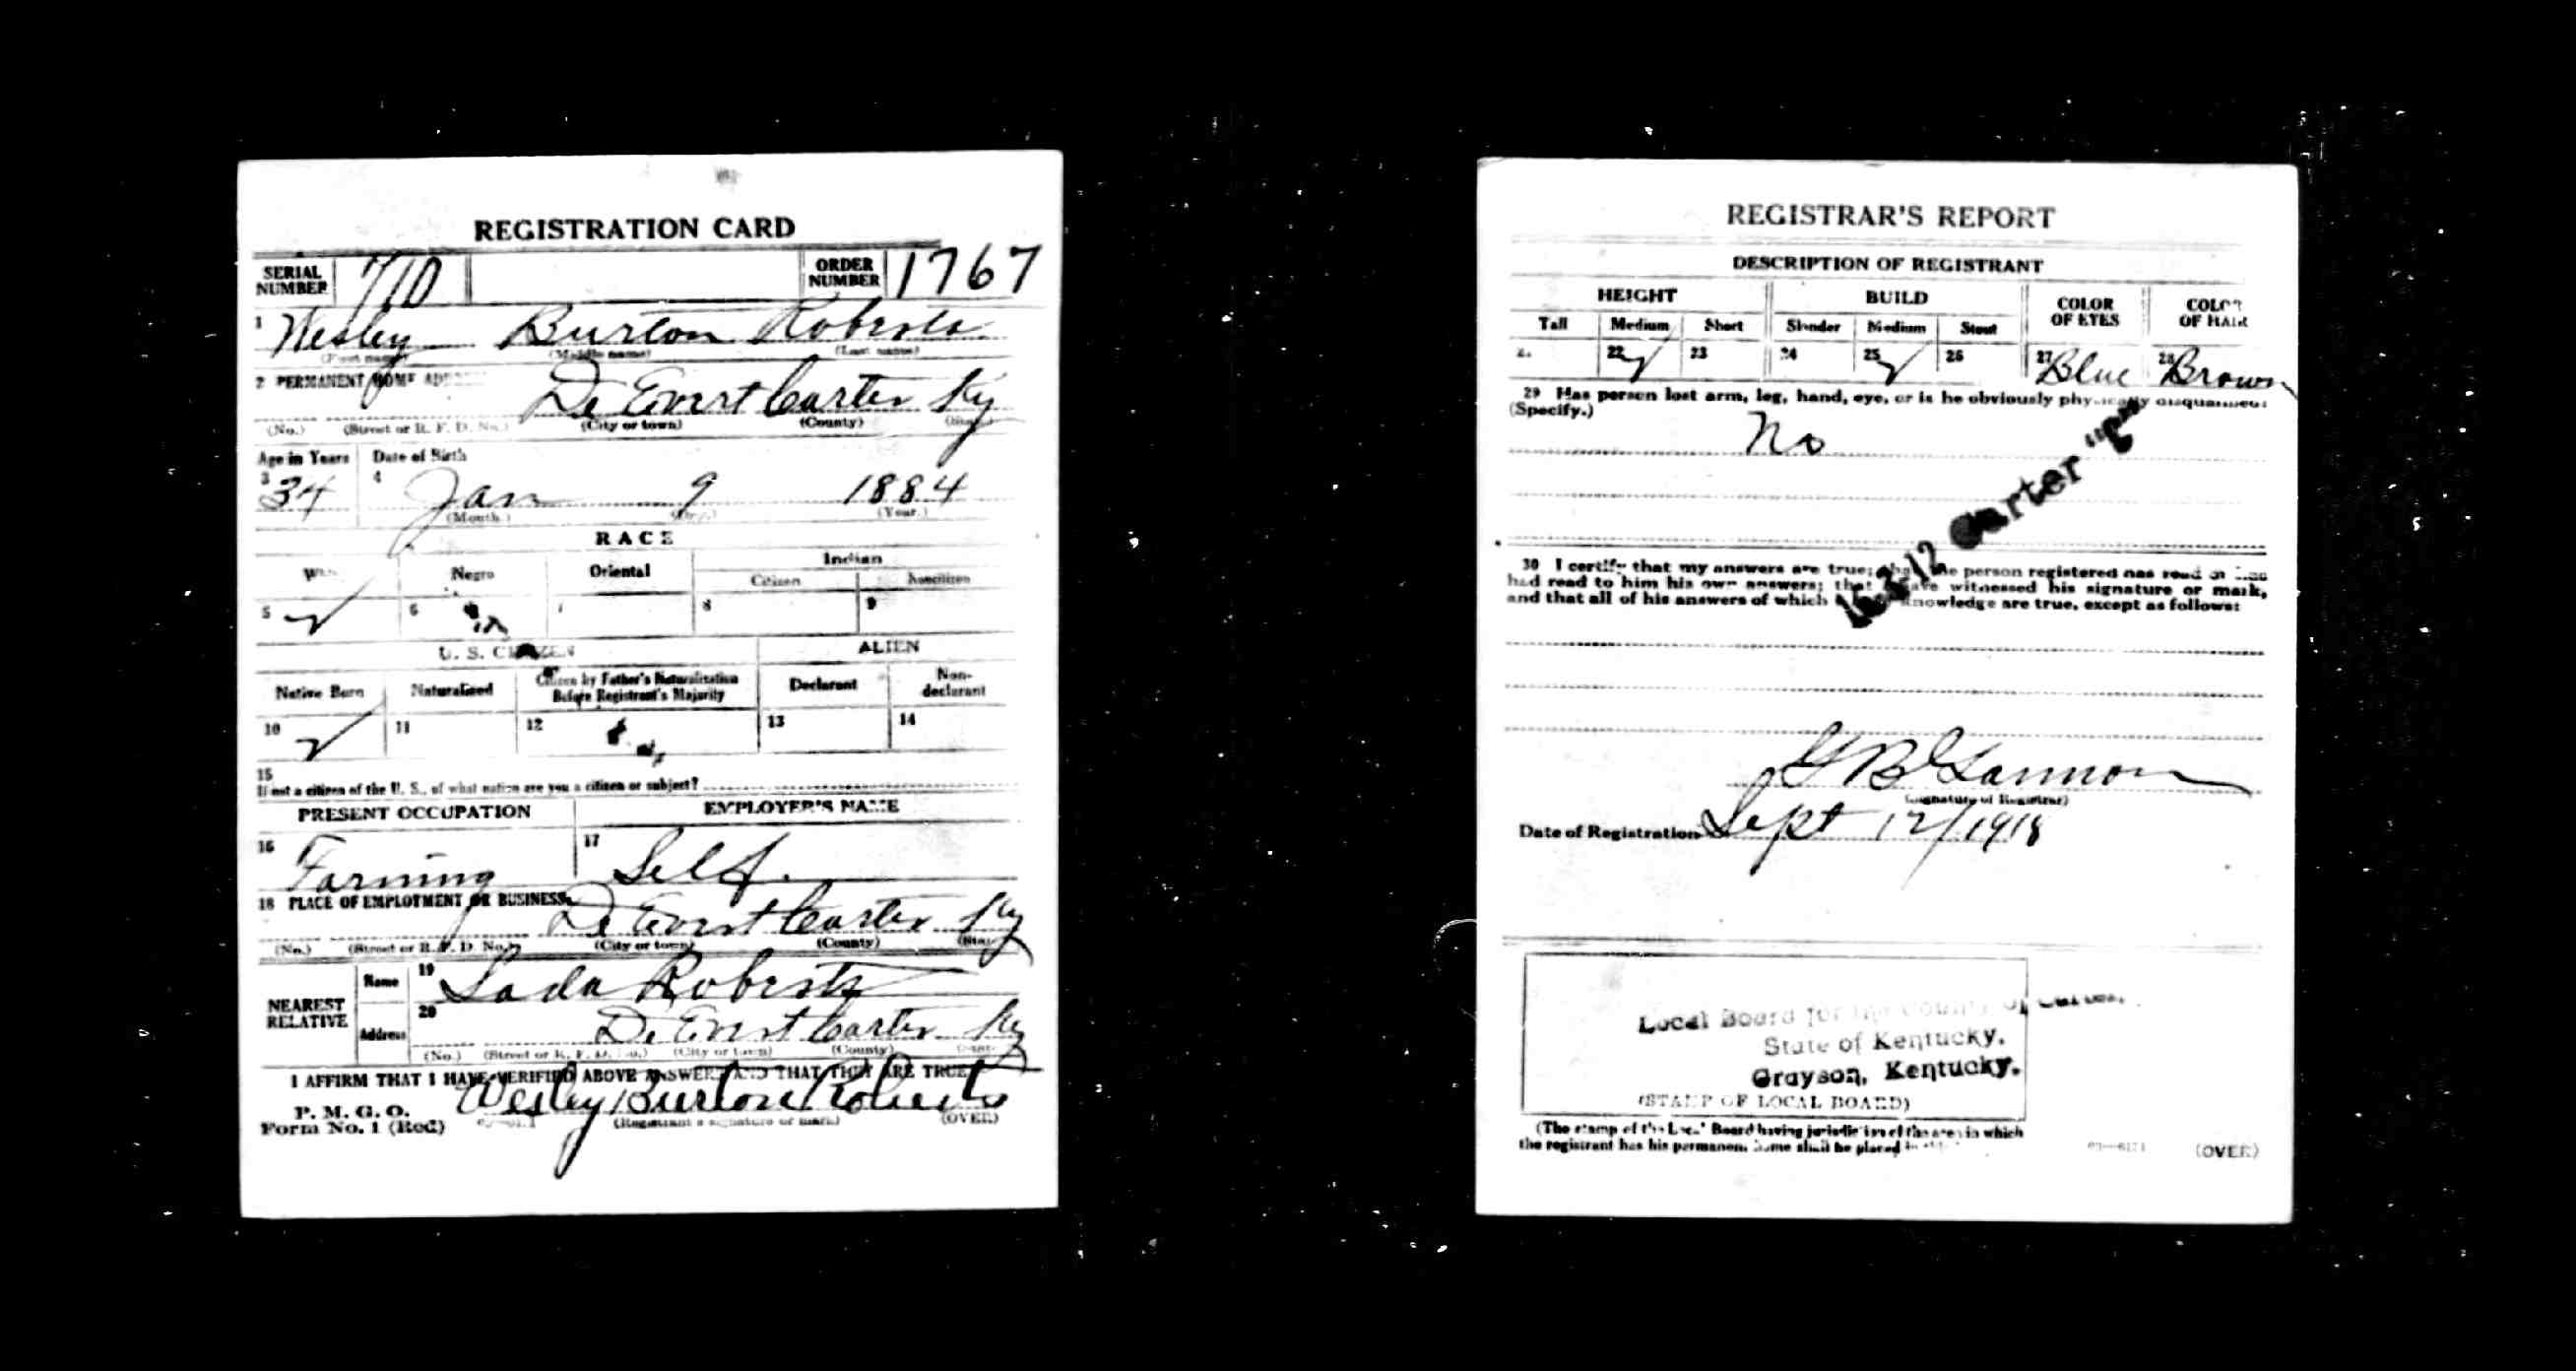 REGISTRATION CARD
SERIAL NUMBER 710 ORDER NUMBER 1767
1 Wesley Burton Roberts
(First name) (Middle name) (Last name)
2 PERMANENT HOME
De Evert Carter Ky
(No.) (Street or R. F. D. No.) (City or town) (County)
Age in Years Date of Birth
3 34 4 Jan 9 1884
(Month.) (Year.)
RACE
Negro Oriental Indian
Citizen Noncitizen
5 6 7 8 9
U. S. CITIZEN ALIEN
Native Born Naturalized Citizen by Father's Naturalization Before Registrant's Majority Declarant Non-declarant
10 11 12 13 14
15
If not a citizen of the U. S., of what nation are you a citizen or subject?
PRESENT OCCUPATION EMPLOYER'S NAME
16 Farming 17 Self.
18 PLACE OF EMPLOYMENT OR BUSINESS
De Evert Carter Ky
(No.) (Street or R. F. D. No.) (City or town) (County)
NEAREST RELATIVE Name 19 Lada Roberts
Address 20 De Evert Carter Ky
(No.) (Street or R. F. D. No.) (City or town) (County)
I AFFIRM THAT I HAVE VERIFIED ABOVE ANSWERS AND THAT THEY ARE TRUE
P. M. G. O.
Form No. 1 (Red) Wesley Burton Roberts
(Registrant's signature or mark) (OVER)
REGISTRAR'S REPORT
DESCRIPTION OF REGISTRANT
HEIGHT BUILD COLOR OF EYES COLOR OF HAIR
Tall Medium Short Slender Medium Stout
22 23 24 25 26 27 Blue 28 Brown
29 Has person lost arm, leg, hand, eye, or is he obviously physically disqualified?
(Specify.)
No
16-3-12 Carter "C"
30 I certify that my answers are true; that the person registered has read or has
had read to him his own answers; that I have witnessed his signature or mark,
and that all of his answers of which I have knowledge are true, except as follows:
(Signature of Registrar)
Date of Registration Sept 12/1918
Local Board for the County of Carter,
State of Kentucky.
Grayson, Kentucky.
(STAMP OF LOCAL BOARD)
(The stamp of the Local Board having jurisdiction of the area in which
the registrant has his permanent home shall be placed in
(OVER)